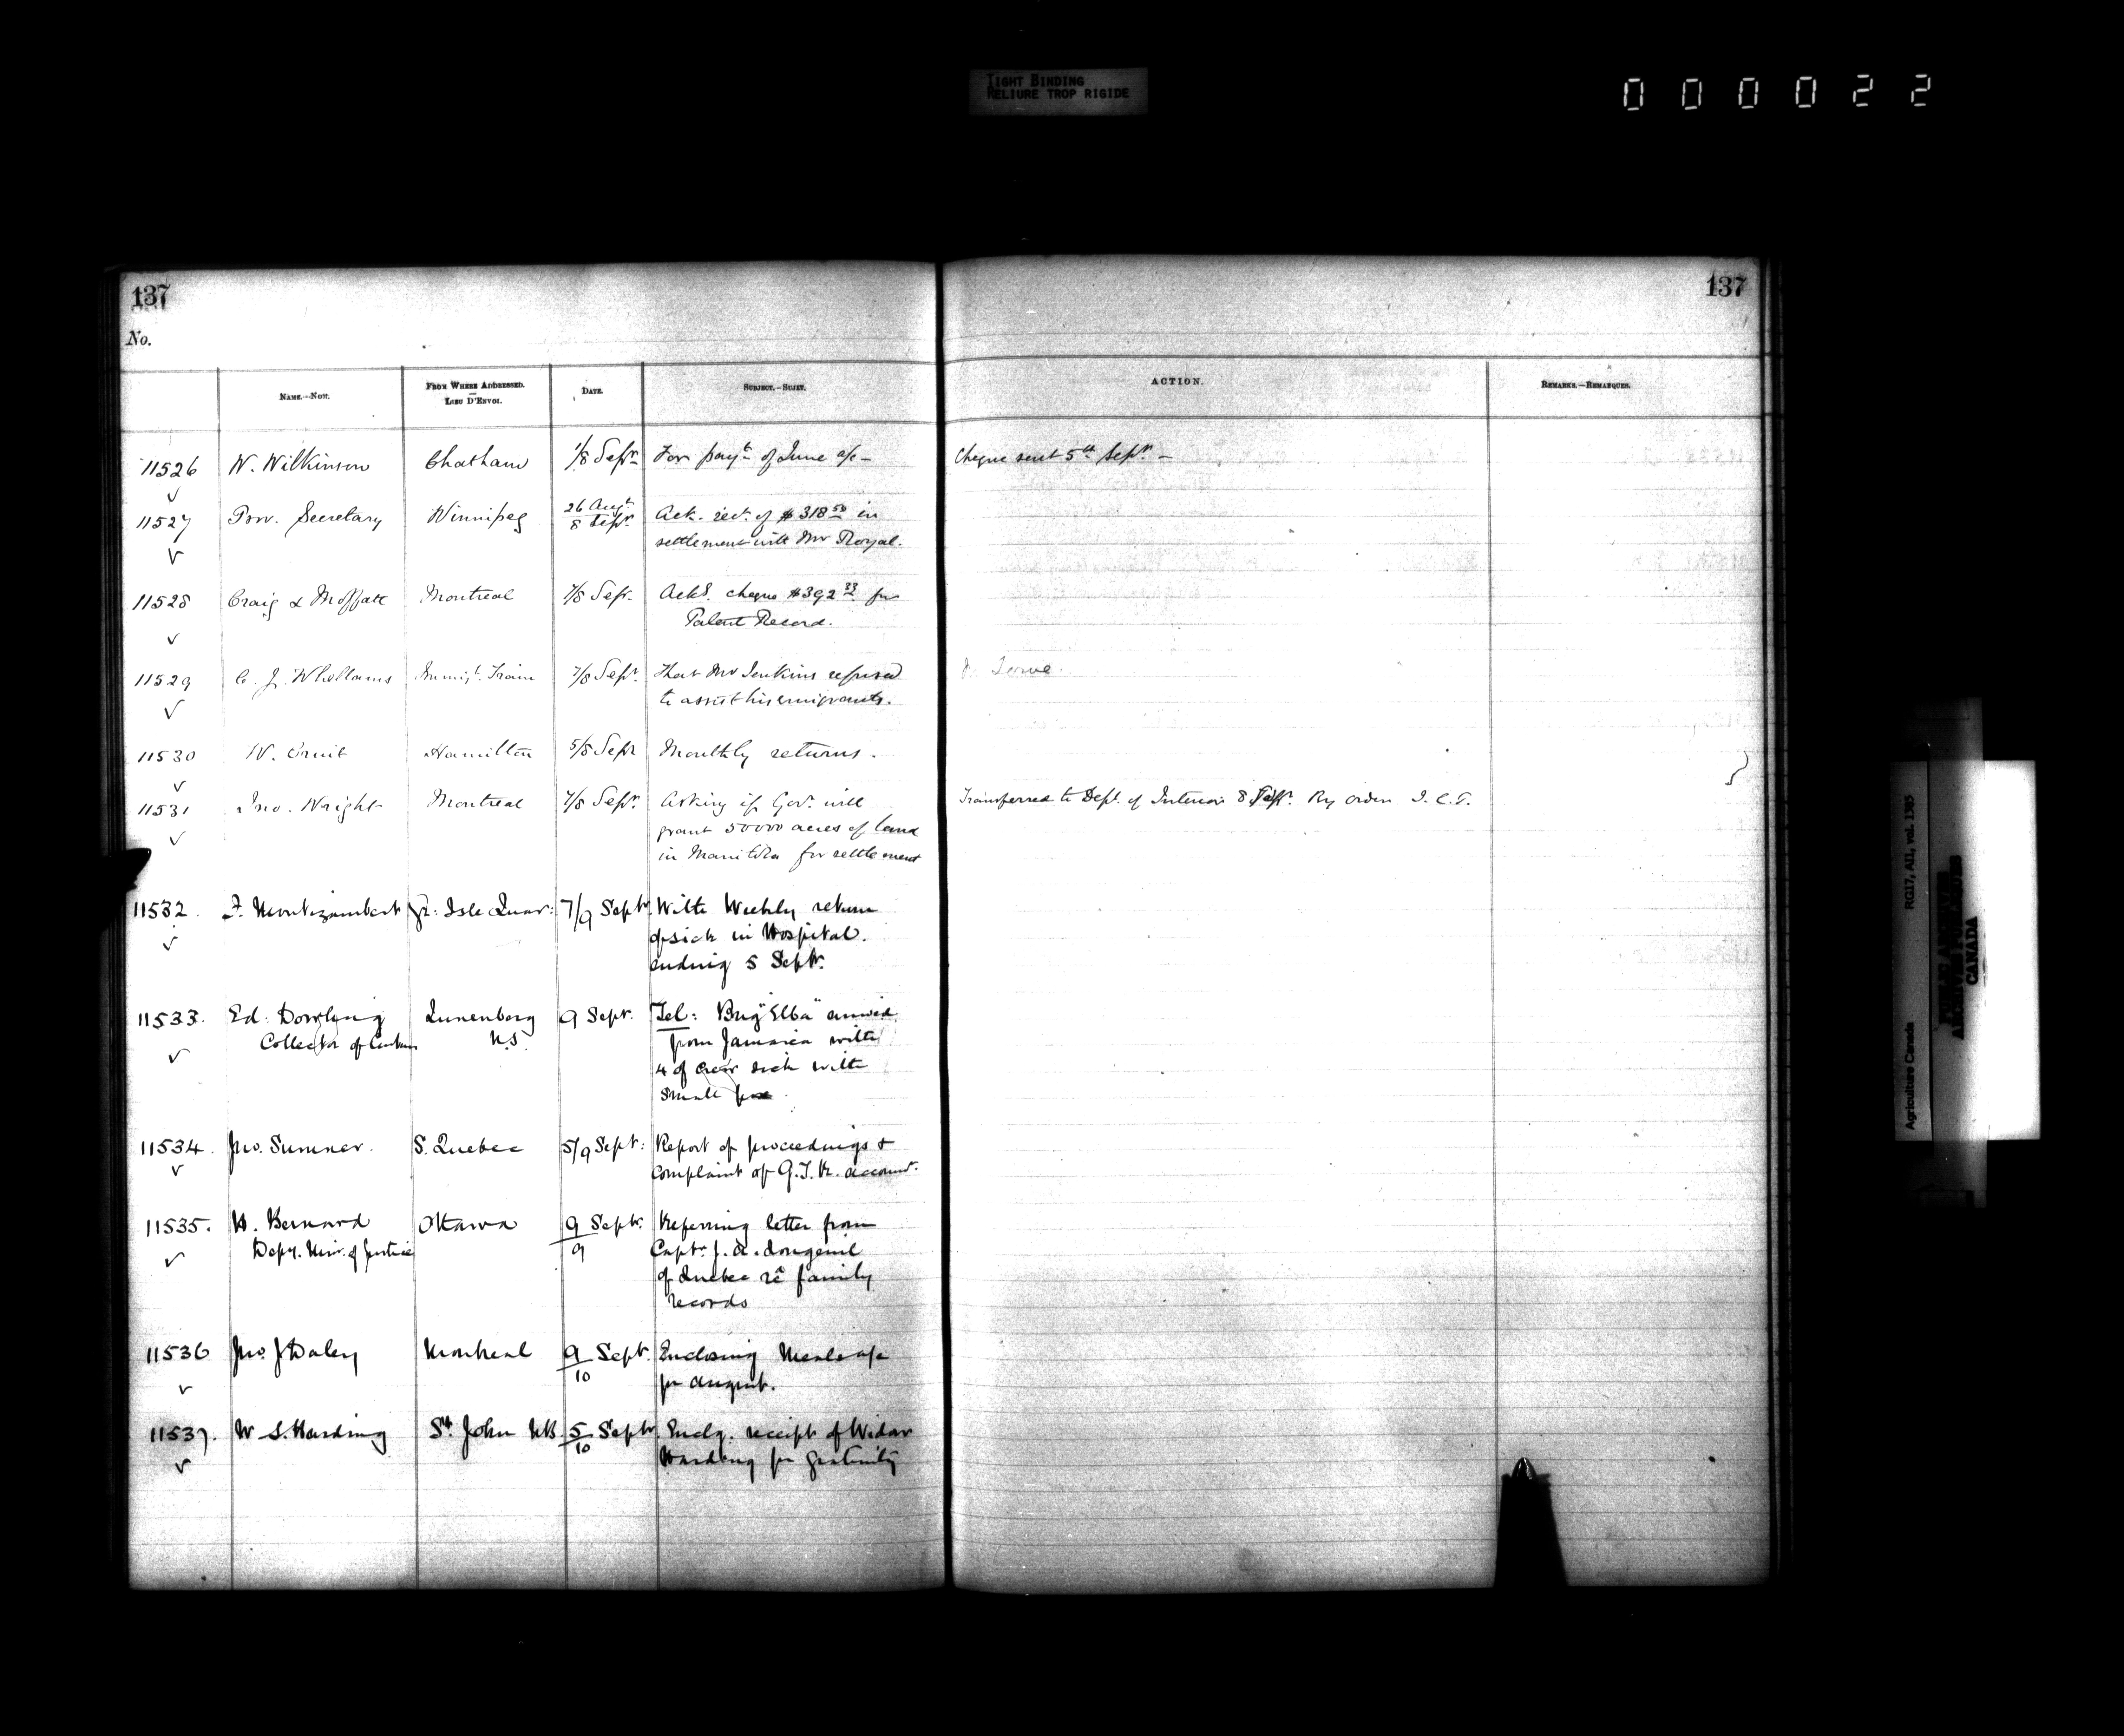 TIGHT BINDING
RELIURE TROP RIGIDE
000022
137
137
No.
NAME.—NOM.
FROM WHERE ADDRESSED.
—
LIEU D'ENVOI.
DATE.
SUBJECT.—SUJET.
ACTION.
REMARKS.—REMARQUES.
11526 W. Wilkinson Chatham 1/8 Sepr. For payt. of June a/c — Cheque sent 5th Sepr. —
11527 Prov. Secretary Winnipeg 26 Augt. 8 Sepr. Ack. rect. of $318.50 in
settlement with Mr Royal.
11528 Craig & Moffatt Montreal 7/8 Sepr. Ackd. cheque $392.33 for
Patent Record.
11529 C. J. Whellams Immigt. Train 7/8 Sepr. That Mr Jenkins refused
to assist his emigrants.
11530 W. Hamilton 5/8 Sepr Monthly returns.
11531 Jno. Wright Montreal 7/8 Sepr. Asking if Govt. will Transferred to Dept. of Interior 8 Sepr. By order J.C.T.
grant 50000 acres of land
in Manitoba for settlement
11532. F. Montizambert Gr: Isle Quar: 7/9 Septr. With Weekly return
of sick in Hospital.
ending 5 Septr.
11533. Ed: Dowling Lunenberg 9 Septr. Tel: Brig "Elba" arrived
Collector of Customs N.S. from Jamaica with
4 of crew sick with
small pox.
11534. Jno. Sumner. S. Quebec 5/9 Septr: Report of proceedings &
complaint of G.T.R. account.
11535. H. Bernard Ottawa 9/9 Septr. Referring letter from
Depy. Min. of Justice Captn. J. A.
of Quebec re family
records
11536 Jno. J Daley Montreal 9/10 Septr. Enclosing Meals a/c
for August.
11537. W. S. Harding St. John NB. 5/10 Septr. Enclg. receipt of Widow
Harding for gratuity
Agriculture Canada
RG17, AII, vol. 1385
PUBLIC ARCHIVES
ARCHIVES PUBLIQUES
CANADA